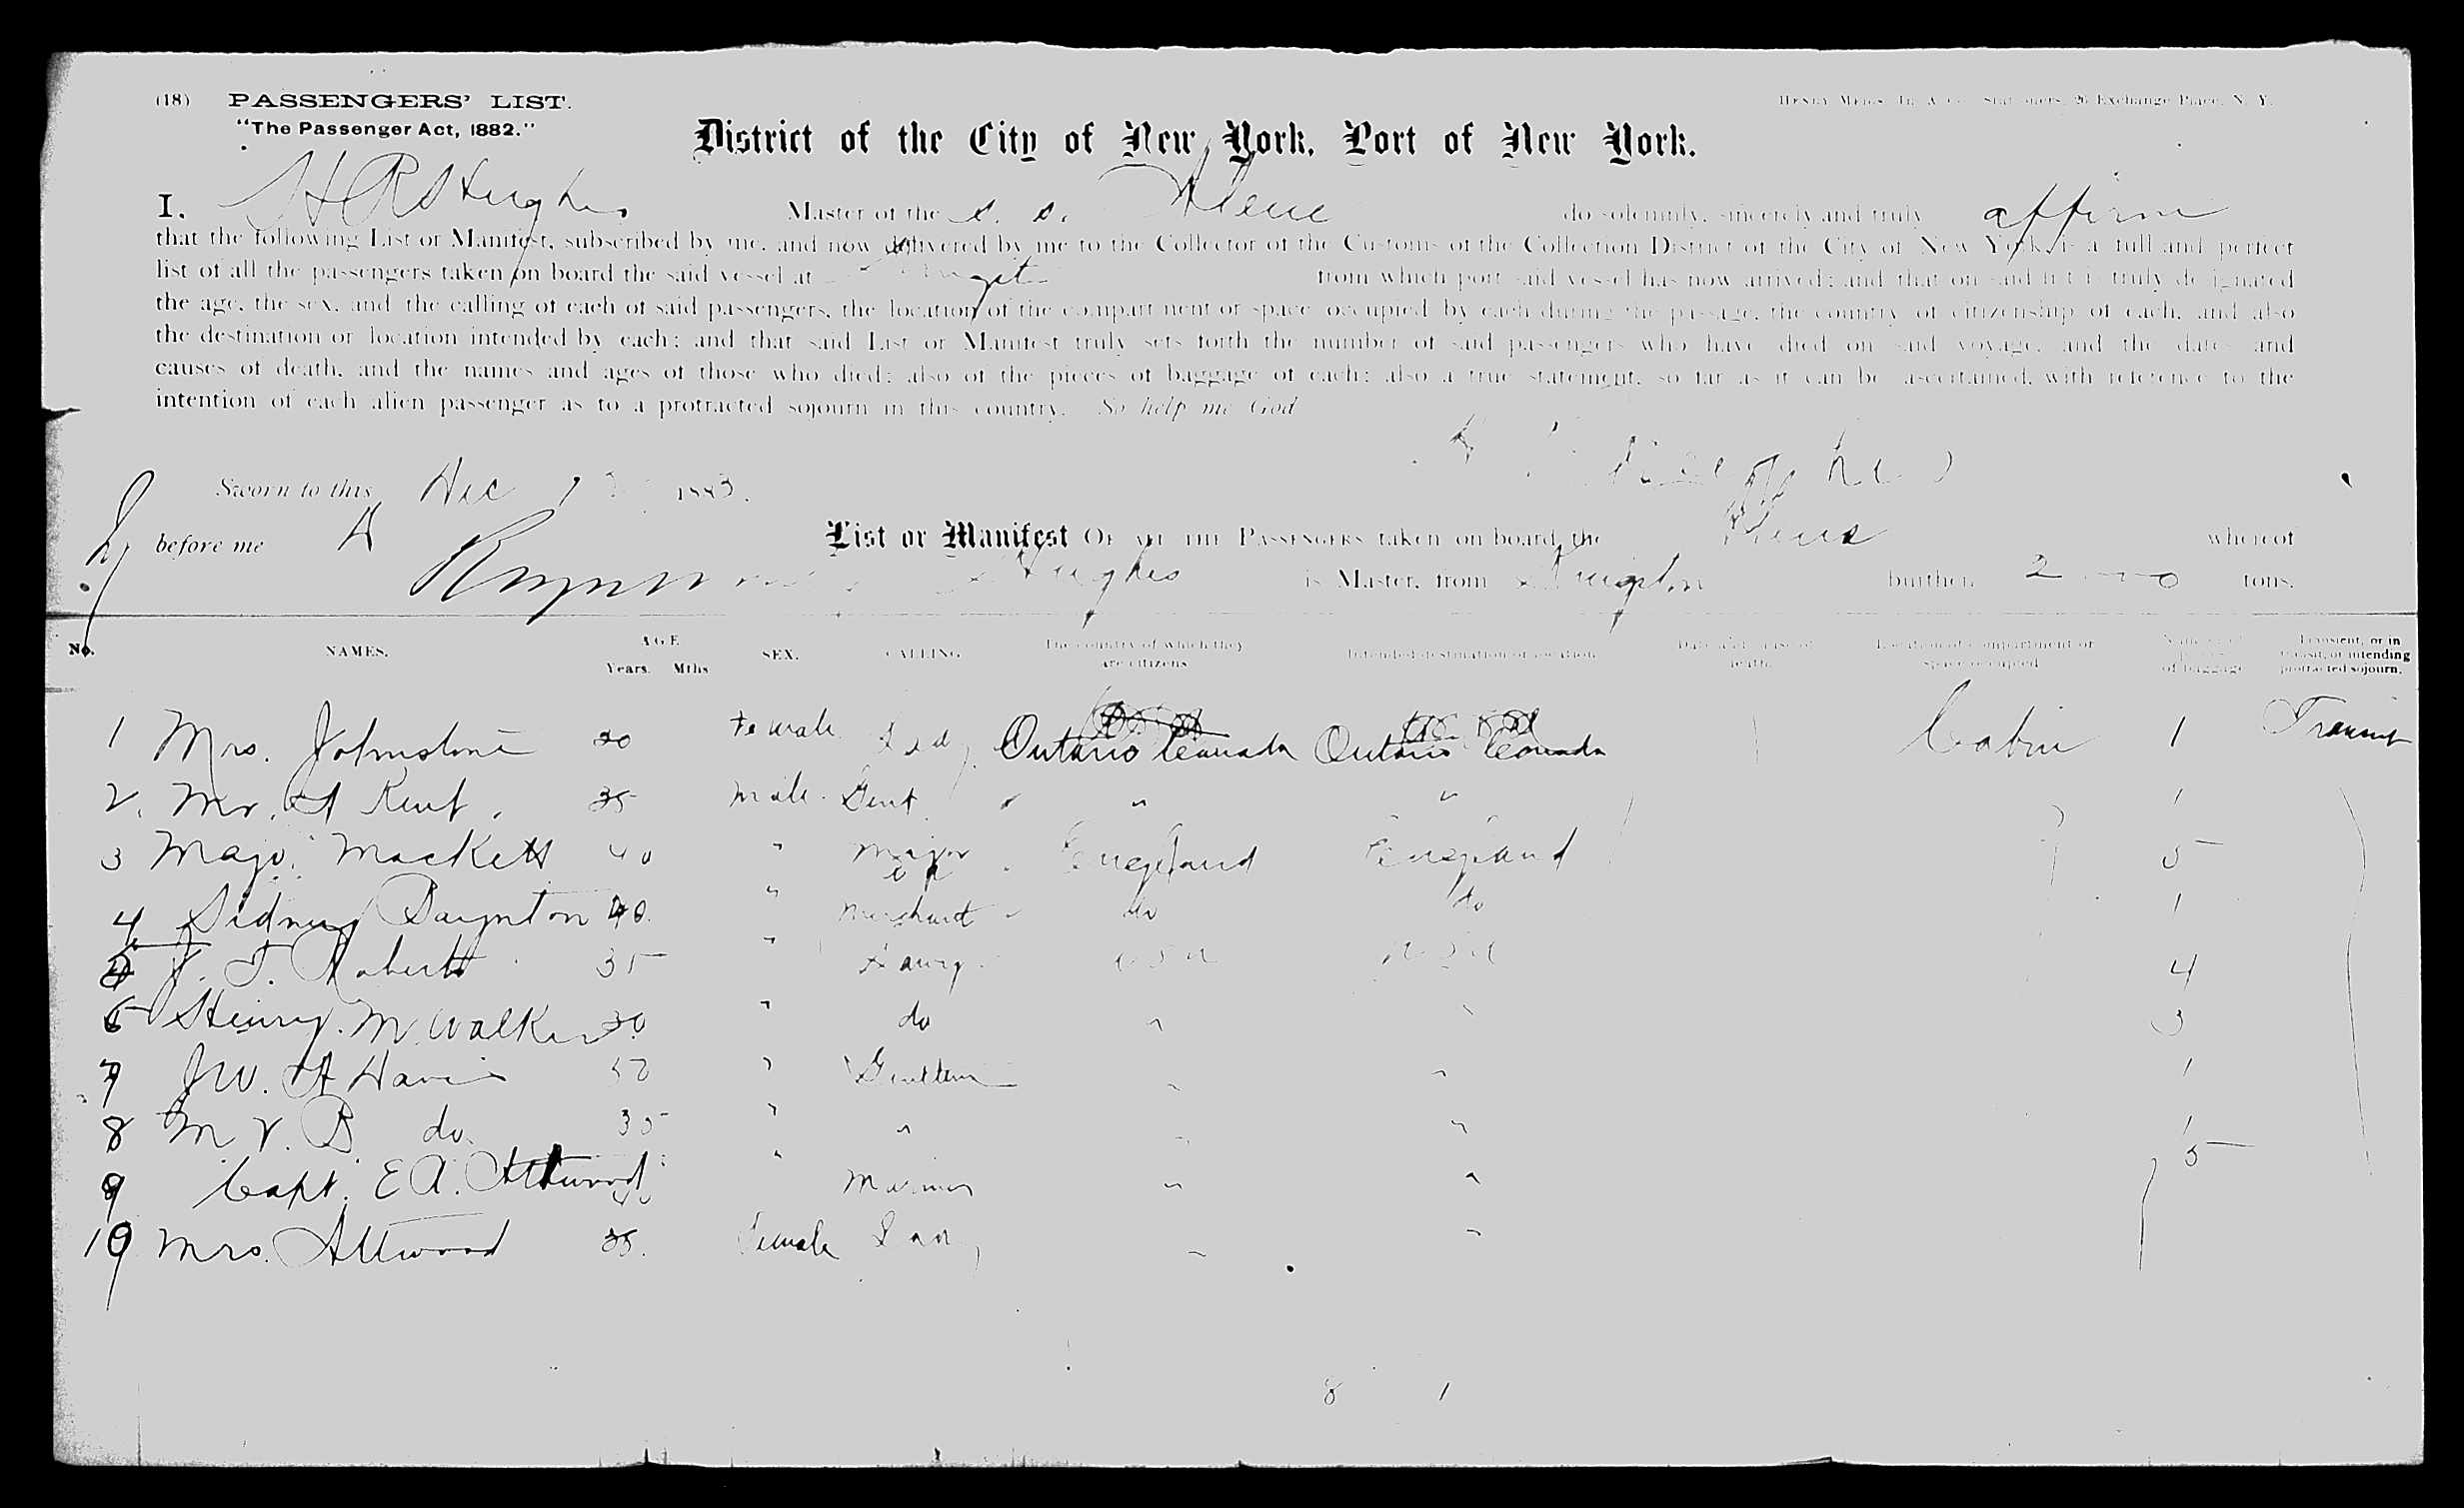 (18) PASSENGERS' LIST.
"The Passenger Act, 1882."
District of the City of New York, Port of New York.
I, Hughes Master of the S. S. do solemnly, sincerely and truly affirm
that the following List or Manifest, subscribed by me, and now delivered by me to the Collector of the Customs of the Collection District of the City of New York, is a full and perfect
list of all the passengers taken on board the said vessel at from which port said vessel has now arrived; and that on said list is truly designated
the age, the sex, and the calling of each of said passengers, the location of the compartment or space occupied by each during the passage, the country of citizenship of each, and also
the destination or location intended by each; and that said List or Manifest truly sets forth the number of said passengers who have died on said voyage, and the dates and
causes of death, and the names and ages of those who died; also of the pieces of baggage of each; also a true statement, so far as it can be ascertained, with reference to the
intention of each alien passenger as to a protracted sojourn in this country. So help me God
Sworn to this Dec 1883.
before me
List or Manifest OF ALL THE PASSENGERS taken on board the whereof
Hughes is Master, from Kingston burthen, tons.
No. NAMES. AGE Years. Mths. SEX. CALLING. The country of which they are citizens. Intended destination or location. Date and cause of death. Location of compartment or space occupied. Number of pieces of baggage. Transient, or in transit, or intending protracted sojourn.
1 Mrs. Johnstone 30 Female Lady Ontario Canada Ontario Canada Cabin 1 Transit
2. Mr. A Kent. 35 male. Gent " " 1
3 Majo. Mackett 40 " Major England England 5
4 Sidney Baynton 40. " Merchant do do 1
5 J. T. Roberts 35 " U S A U S A 4
6 Henry. M. Walker 30 " do " " 3
7 J W. H Davis 50 " " " 1
8 M V. B do. 35 " " " " 1
9 Capt. E A. Attwood 40 " Mariner " " 5
10 Mrs. Attwood 35. Female Lady " "
8 1